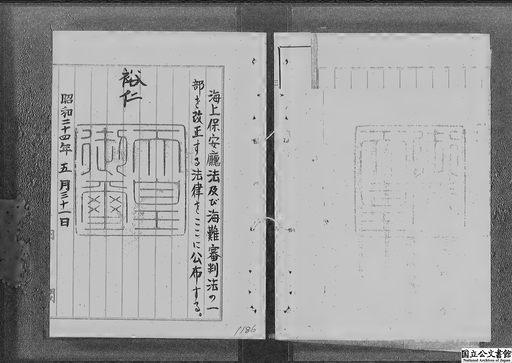 海上保安廳法及び海難審判法の一
部を改正する法律をここに公布する。
裕仁
天皇
御璽
昭和二十四年五月三十一日
1186
国立公文書館
National Archives of Japan